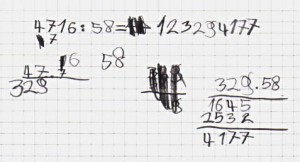 4716:58= 12329 4177
7
47.76 58
329
329.58
1645
2532
4177